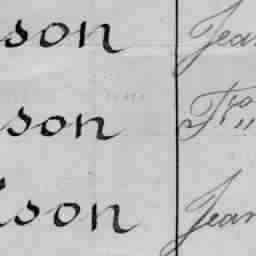 son Jea
son Fr„
son Jean